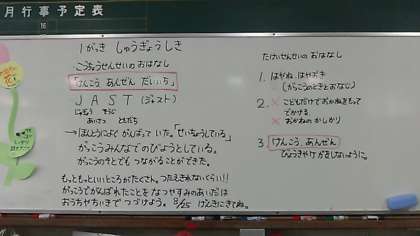 月行事予定表
16
1がっき しゅうぎょうしき
こうちょうせんせいの おはなし
「けんこう あんぜん だいいち」
JAST(ジャスト)
じかん そうじ
あいさつ ともだち
→ほんとうによく がんばっていた。「せいちょうしている」
がっこうみんなでのびようとしている。
がっこうのそとでも つながることができた。
もっともっといいところがたくさん。つたえきれないくらい!!
がっこうでがんばれたことを なつやすみのあいだは
おうちやちいきで つづけよう。8/25 げんきにきてね。
たけいせんせいの おはなし
1. はやね、はやおき
(がっこうのときとおなじ)
2. × こどもだけで おかねをもって
でかける
× おかねの かしかり
3. けんこう あんぜん
びょうきやけがをしないように。